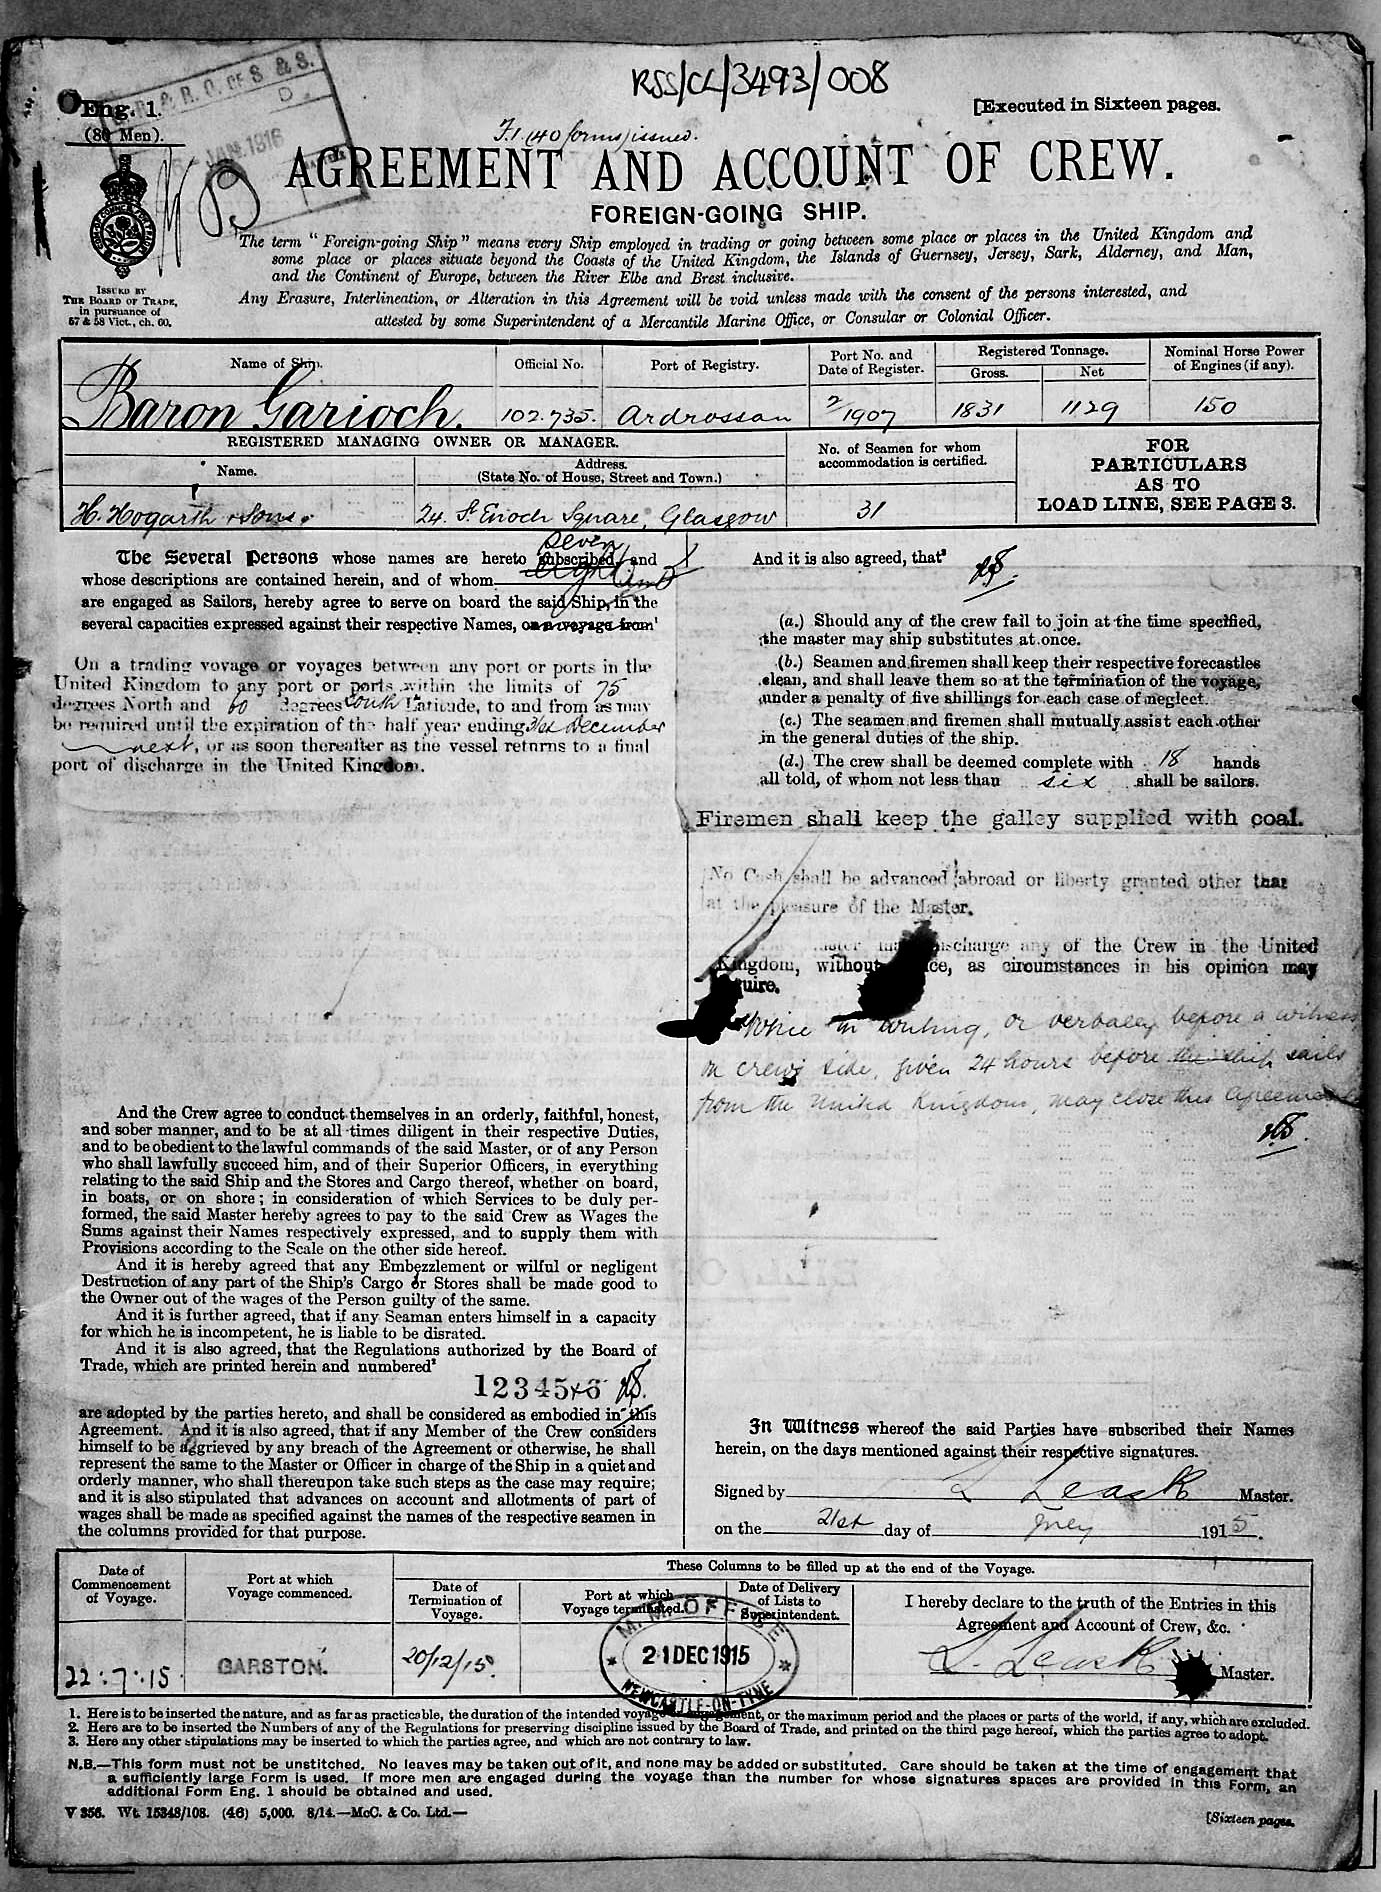 RSS/CL/3493/008
Eng. 1.
(80 Men).
[Executed in Sixteen pages.
& R. O. OF S. & S.
JAN. 1916
F.1. (40 forms) issued.
AGREEMENT AND ACCOUNT OF CREW.
FOREIGN-GOING SHIP.
The term “Foreign-going Ship” means every Ship employed in trading or going between some place or places in the United Kingdom and
some place or places situate beyond the Coasts of the United Kingdom, the Islands of Guernsey, Jersey, Sark, Alderney, and Man,
and the Continent of Europe, between the River Elbe and Brest inclusive.
Any Erasure, Interlineation, or Alteration in this Agreement will be void unless made with the consent of the persons interested, and
attested by some Superintendent of a Mercantile Marine Office, or Consular or Colonial Officer.
ISSUED BY
THE BOARD OF TRADE,
in pursuance of
57 & 58 Vict., ch. 60.
Name of Ship.
Official No.
Port of Registry.
Port No. and
Date of Register.
Registered Tonnage.
Gross.
Net
Nominal Horse Power
of Engines (if any).
Baron Garioch.
102.735.
Ardrossan
2/1907
1831
1129
150
REGISTERED MANAGING OWNER OR MANAGER.
Name.
Address.
(State No. of House, Street and Town.)
No. of Seamen for whom
accommodation is certified.
FOR
PARTICULARS
AS TO
LOAD LINE, SEE PAGE 3.
H. Hogarth & Sons.
24. St. Enoch Square, Glasgow
31
The Several Persons whose names are hereto subscribed, and
seven
whose descriptions are contained herein, and of whom
are engaged as Sailors, hereby agree to serve on board the said Ship, in the
several capacities expressed against their respective Names, on a voyage from¹
On a trading voyage or voyages between any port or ports in the
United Kingdom to any port or ports within the limits of 75
degrees North and 60 degrees South Latitude, to and from as may
be required until the expiration of the half year ending 31st December
next, or as soon thereafter as the vessel returns to a final
port of discharge in the United Kingdom.
And the Crew agree to conduct themselves in an orderly, faithful, honest,
and sober manner, and to be at all times diligent in their respective Duties,
and to be obedient to the lawful commands of the said Master, or of any Person
who shall lawfully succeed him, and of their Superior Officers, in everything
relating to the said Ship and the Stores and Cargo thereof, whether on board,
in boats, or on shore; in consideration of which Services to be duly per-
formed, the said Master hereby agrees to pay to the said Crew as Wages the
Sums against their Names respectively expressed, and to supply them with
Provisions according to the Scale on the other side hereof.
And it is hereby agreed that any Embezzlement or wilful or negligent
Destruction of any part of the Ship's Cargo or Stores shall be made good to
the Owner out of the wages of the Person guilty of the same.
And it is further agreed, that if any Seaman enters himself in a capacity
for which he is incompetent, he is liable to be disrated.
And it is also agreed, that the Regulations authorized by the Board of
Trade, which are printed herein and numbered²
12345+6
are adopted by the parties hereto, and shall be considered as embodied in this
Agreement. And it is also agreed, that if any Member of the Crew considers
himself to be aggrieved by any breach of the Agreement or otherwise, he shall
represent the same to the Master or Officer in charge of the Ship in a quiet and
orderly manner, who shall thereupon take such steps as the case may require;
and it is also stipulated that advances on account and allotments of part of
wages shall be made as specified against the names of the respective seamen in
the columns provided for that purpose.
And it is also agreed, that³
(a.) Should any of the crew fail to join at the time specified,
the master may ship substitutes at once.
(b.) Seamen and firemen shall keep their respective forecastles
clean, and shall leave them so at the termination of the voyage,
under a penalty of five shillings for each case of neglect.
(c.) The seamen and firemen shall mutually assist each other
in the general duties of the ship.
(d.) The crew shall be deemed complete with 18 hands
all told, of whom not less than six shall be sailors.
Firemen shall keep the galley supplied with coal.
No Cash shall be advanced abroad or liberty granted other than
at the pleasure of the Master.
may discharge any of the Crew in the United
Kingdom, without as circumstances in his opinion may
in writing, or verbally before a witness
on crew's side, given 24 hours before the ship sails
from the United Kingdom, may close this Agreement
In Witness whereof the said Parties have subscribed their Names
herein, on the days mentioned against their respective signatures.
Signed by L Leask Master.
on the 21st day of July 1915.
Date of
Commencement
of Voyage.
Port at which
Voyage commenced.
These Columns to be filled up at the end of the Voyage.
Date of
Termination of
Voyage.
Port at which
Voyage terminated.
Date of Delivery
of Lists to
Superintendent.
I hereby declare to the truth of the Entries in this
Agreement and Account of Crew, &c.
22:7:15
GARSTON.
20/12/15.
M. M. OFFICE
21 DEC 1915
NEWCASTLE-ON-TYNE
L. Leask Master.
1. Here is to be inserted the nature, and as far as practicable, the duration of the intended voyage or engagement, or the maximum period and the places or parts of the world, if any, which are excluded.
2. Here are to be inserted the Numbers of any of the Regulations for preserving discipline issued by the Board of Trade, and printed on the third page hereof, which the parties agree to adopt.
3. Here any other stipulations may be inserted to which the parties agree, and which are not contrary to law.
N.B.—This form must not be unstitched. No leaves may be taken out of it, and none may be added or substituted. Care should be taken at the time of engagement that
a sufficiently large Form is used. If more men are engaged during the voyage than the number for whose signatures spaces are provided in this Form, an
additional Form Eng. 1 should be obtained and used.
V 356. Wt. 15348/108. (46) 5,000. 8/14.—McC. & Co. Ltd.—
[Sixteen pages.